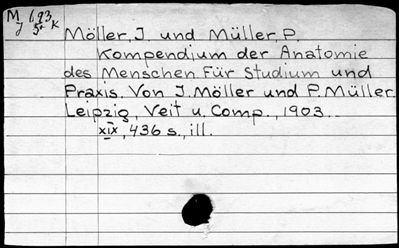 M 693
J 5+ K
Möller, J. und Müller, P.
Kompendium der Anatomie
des Menschen. Für Studium und
Praxis. Von J. Möller und P. Müller.
Leipzig, Veit u. Comp., 1903.
XIX, 436 s., ill.